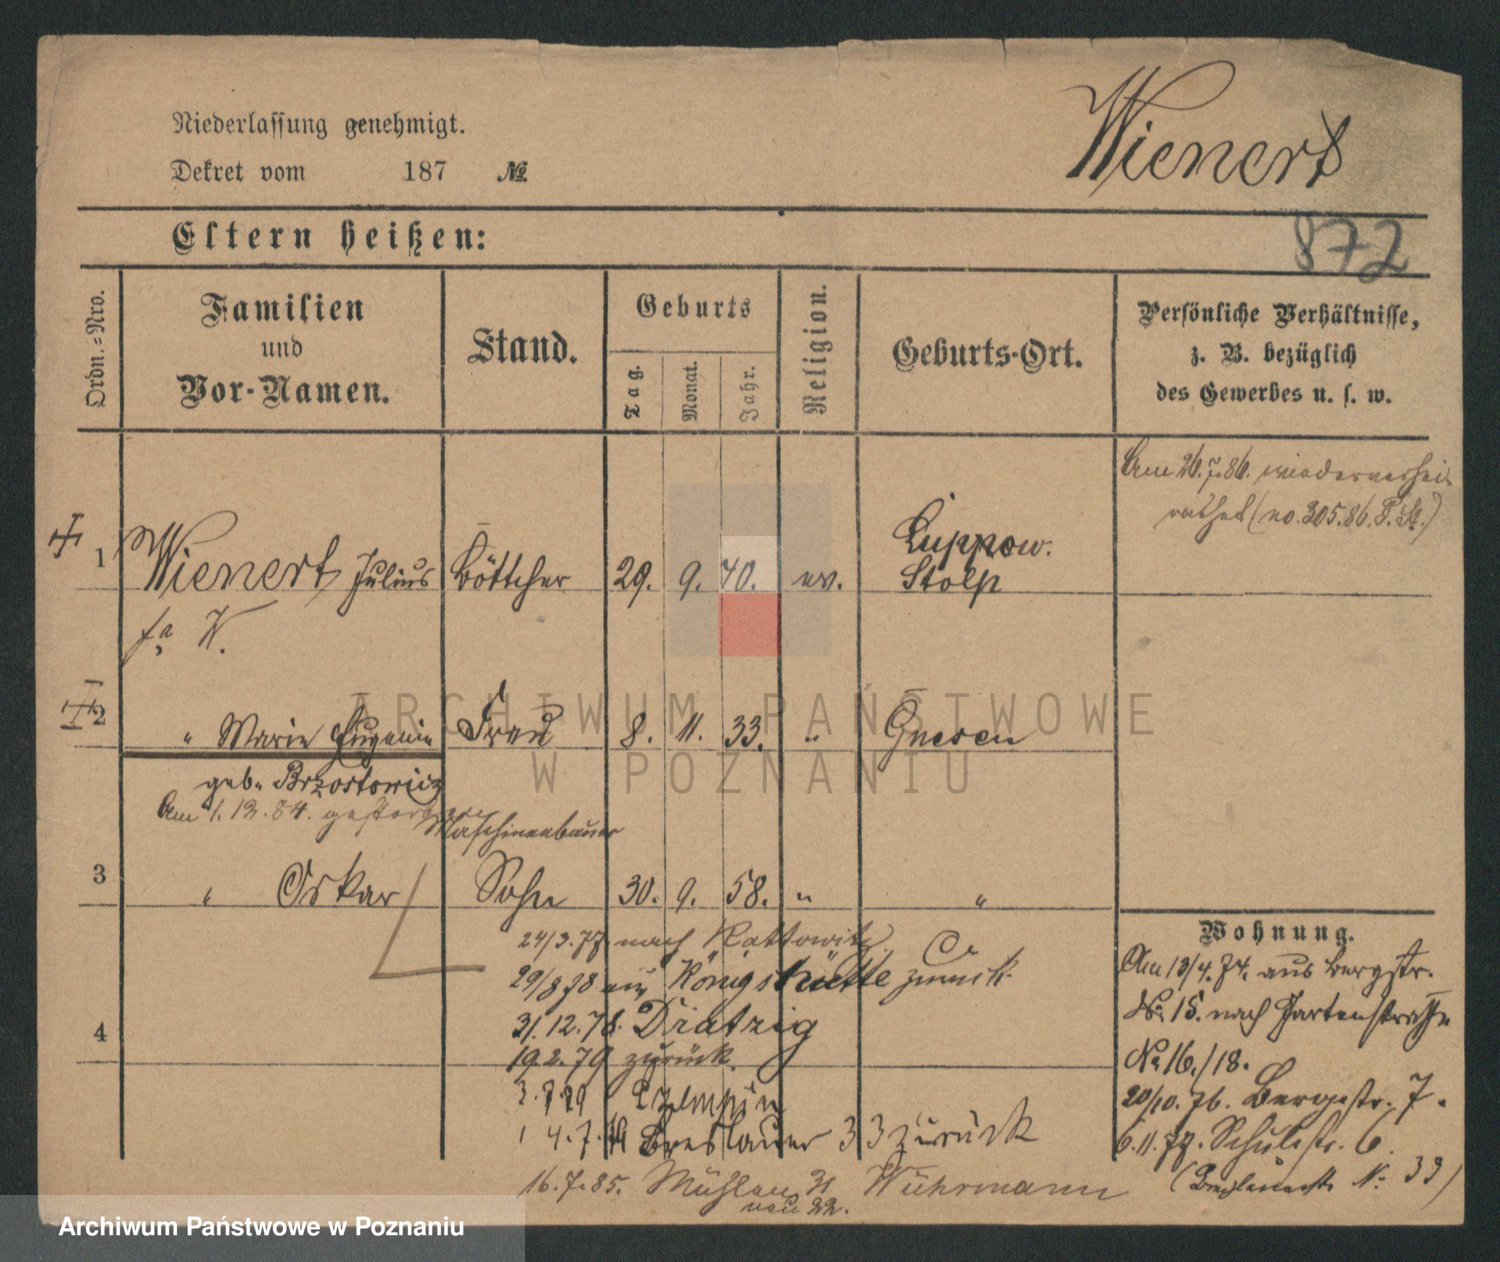 Niederlassung genehmigt.
Wienert
Dekret vom 187 №
Eltern heißen:
872
Ordn.=Nro.
Familien
und
Vor-Namen.
Stand.
Geburts
Tag.
Monat.
Jahr.
Religion.
Geburts-Ort.
Persönliche Verhältnisse,
z. B. bezüglich
des Gewerbes u. s. w.
Am 26.7.86. wiederverhei-
rathet (no. 305.86. P. St.)
1 Wienert Julius Böttcher 29. 9. 40. ev. Luppow.
Stolp
2 " Marie Eugenie Frau 8. 11. 33. " Gnesen
geb. Brzostowicz
Am 1.12.84. gestorben
Maschinenbauer
3 " Oskar Sohn 30. 9. 58. " "
24/3.77 nach Kattowitz
29/8 78 aus Königshütte zurück.
31.12.78. Dratzig
4
19.2.79 zurück.
3.7.79 Czempin
4.7.79 Breslauer 33 zurück
16.7.85. Mühlen 31 Wuhrmann
von 22.
Wohnung.
Am 13/4.74. aus Bergstr.
No. 15. nach Gartenstraße
No 16./18.
20/10.76. Bergstr. 7.
6.11.77. Schulstr. 6.
(Breslauerstr. No. 33)
ARCHIWUM PAŃSTWOWE
W POZNANIU
Archiwum Państwowe w Poznaniu